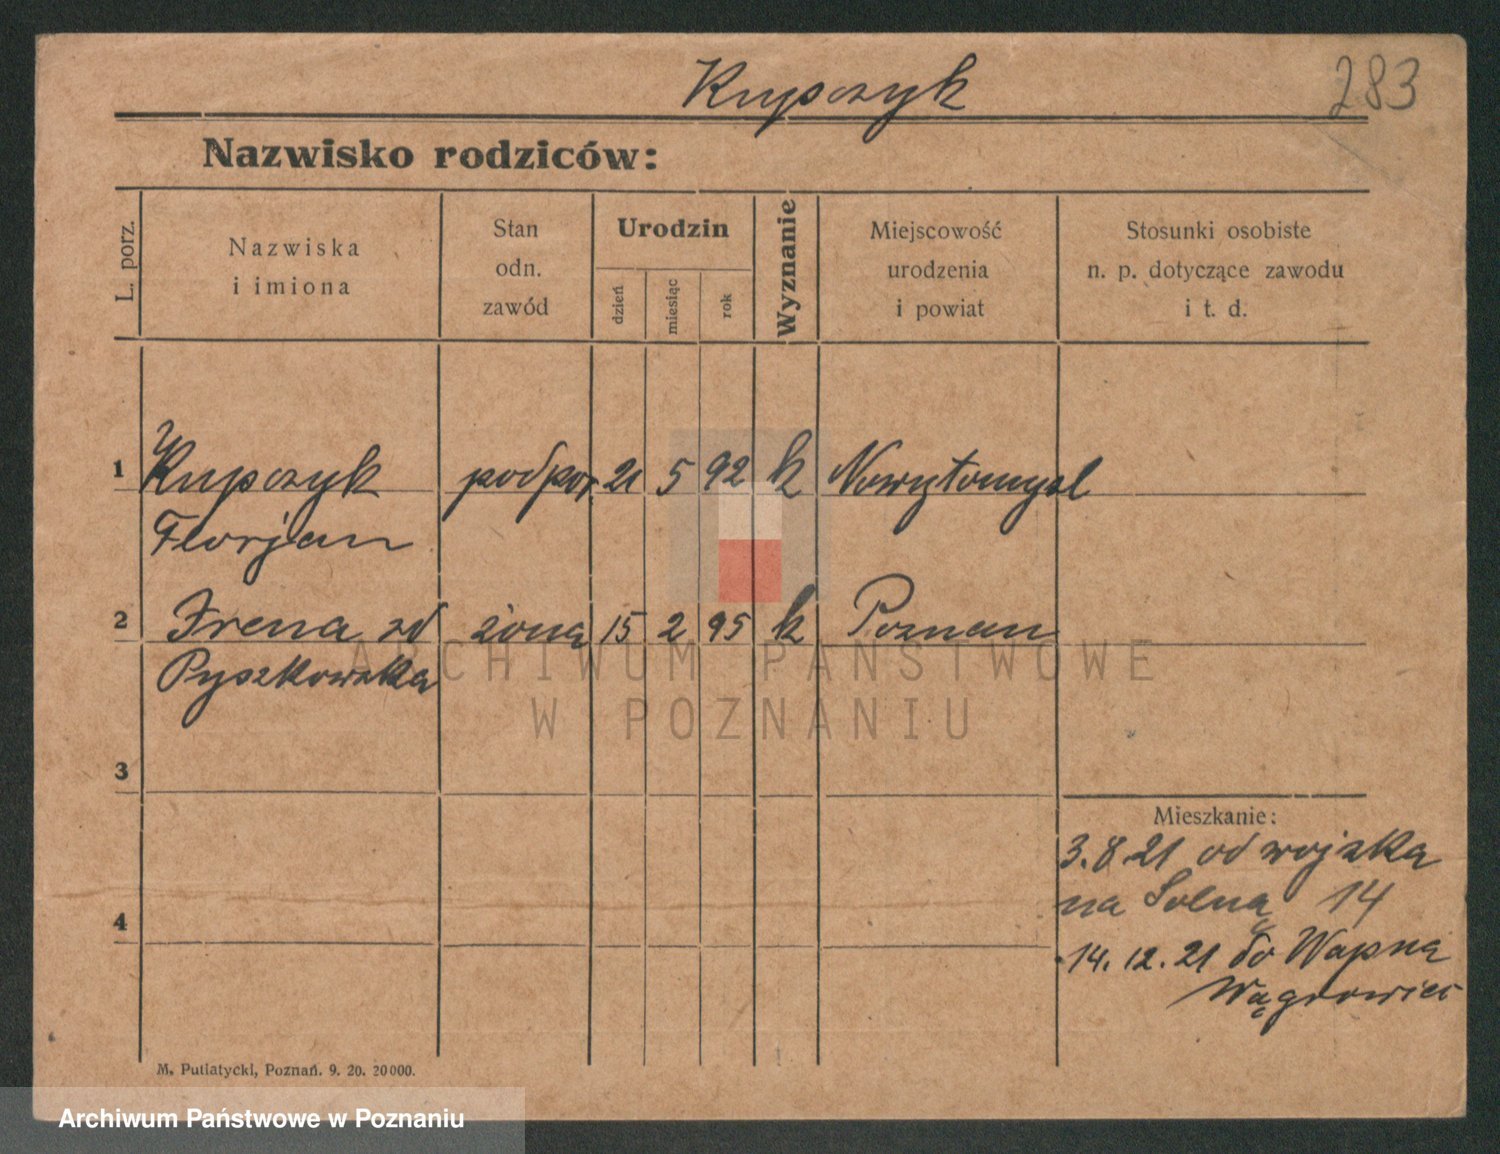 Kupczyk
283
Nazwisko rodziców:
L. porz.
Nazwiska
i imiona
Stan
odn.
zawód
Urodzin
dzień
miesiąc
rok
Wyznanie
Miejscowość
urodzenia
i powiat
Stosunki osobiste
n. p. dotyczące zawodu
i t. d.
1 Kupczyk podpor. 21 5 92 k Nowytomysl
Florjan
2 Irena zd żona 15 2 95 k Poznan
Pyszkowska
ARCHIWUM PAŃSTWOWE
W POZNANIU
3
Mieszkanie:
3.8.21 od wojska
na Solną 14
4
14.12.21 do Wapna
Wągrowiec
M. Putiatycki, Poznań. 9. 20. 20000.
Archiwum Państwowe w Poznaniu